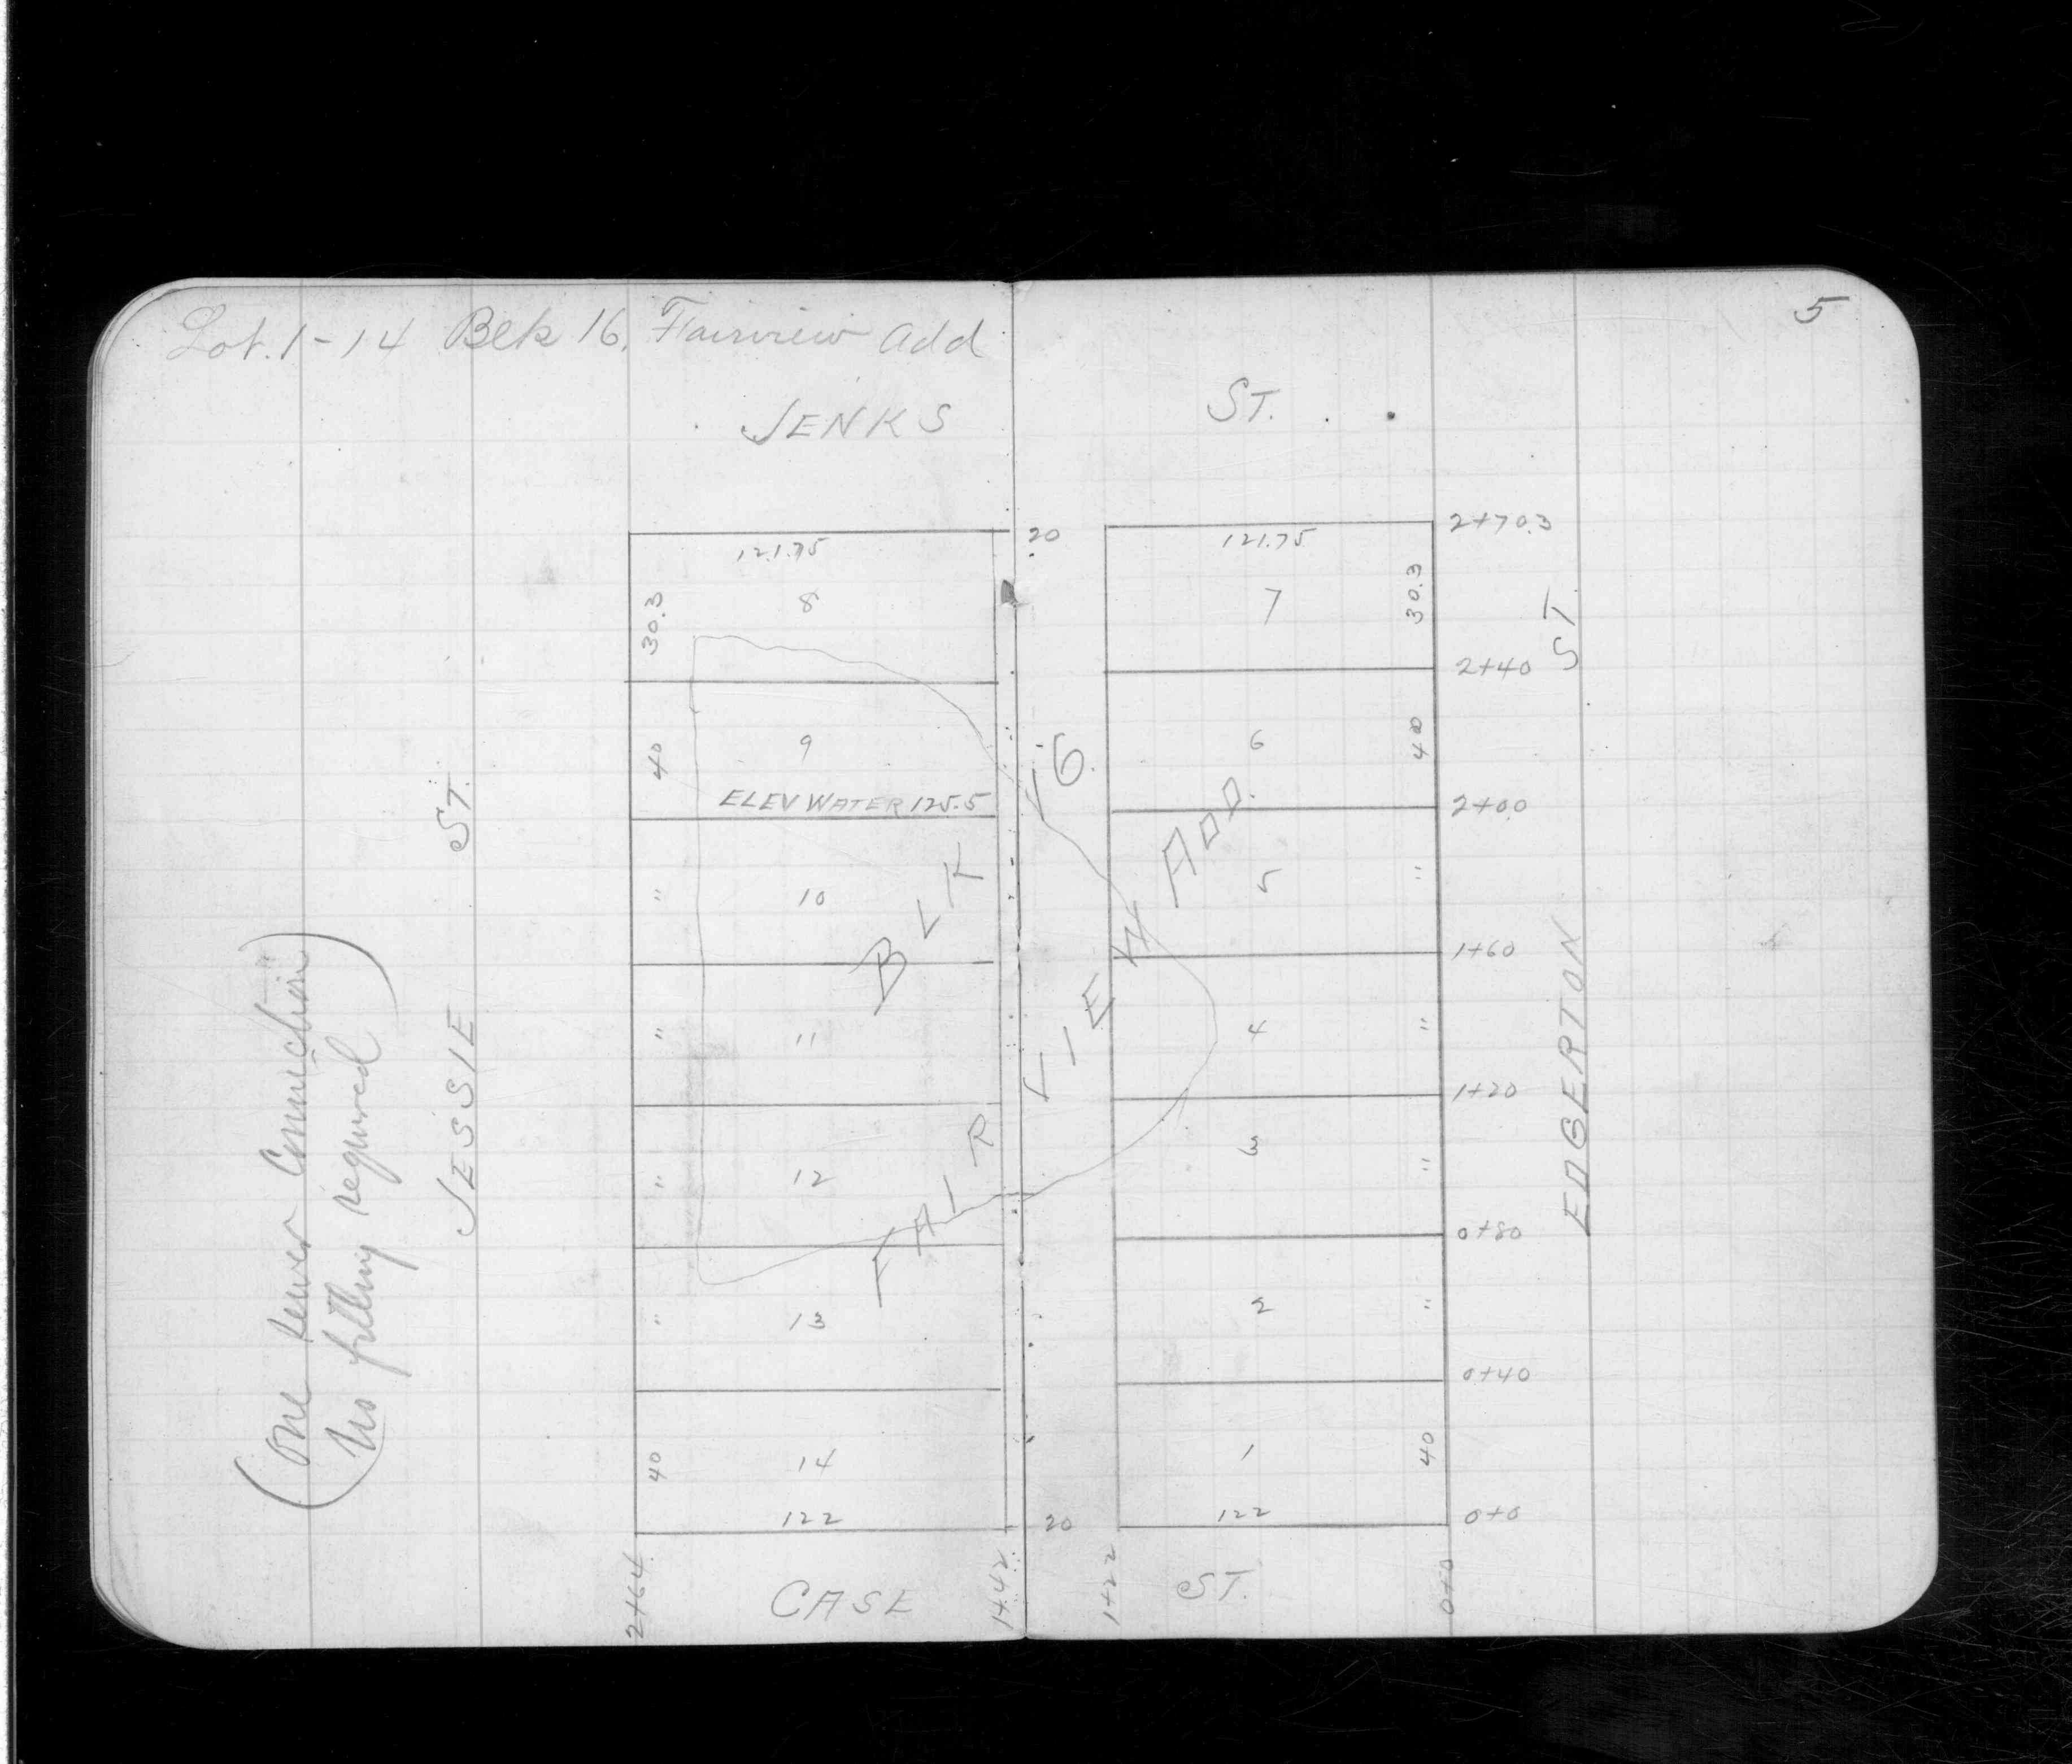 Lot. 1-14 Blk 16, Fairview Add
5
JENKS ST.
20
2+70.3
121.75
121.75
30.3
8
7
30.3
2+40
40
9
6
40
ELEV WATER 125.5
2+00
"
10
5
"
1+60
"
11
4
"
1+20
"
12
3
"
0+80
"
13
2
"
0+40
40
14
1
40
122
20
122
0+0
2+64
1+42
1+22
0+0
CASE ST.
BLK 16.
FAIRVIEW ADD.
JESSIE ST.
EDGERTON ST.
(One sewer Connection
No filling required)